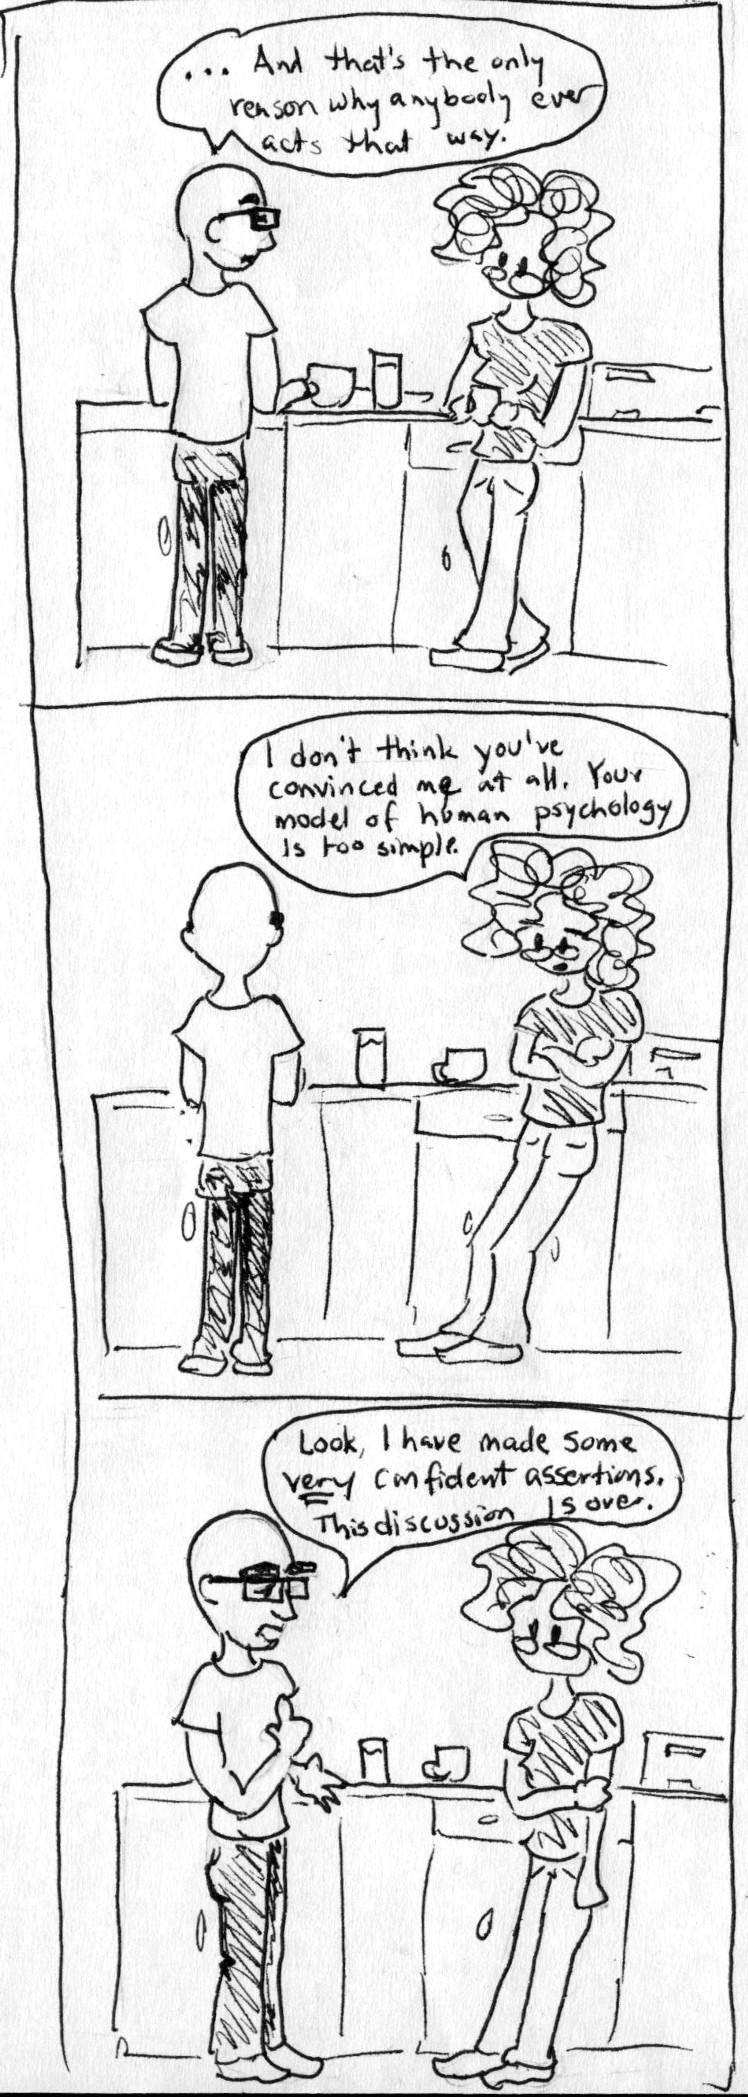 ... And that's the only
reason why anybody ever
acts that way.
I don't think you've
convinced me at all. Your
model of human psychology
is too simple.
Look, I have made some
very confident assertions.
This discussion is over.